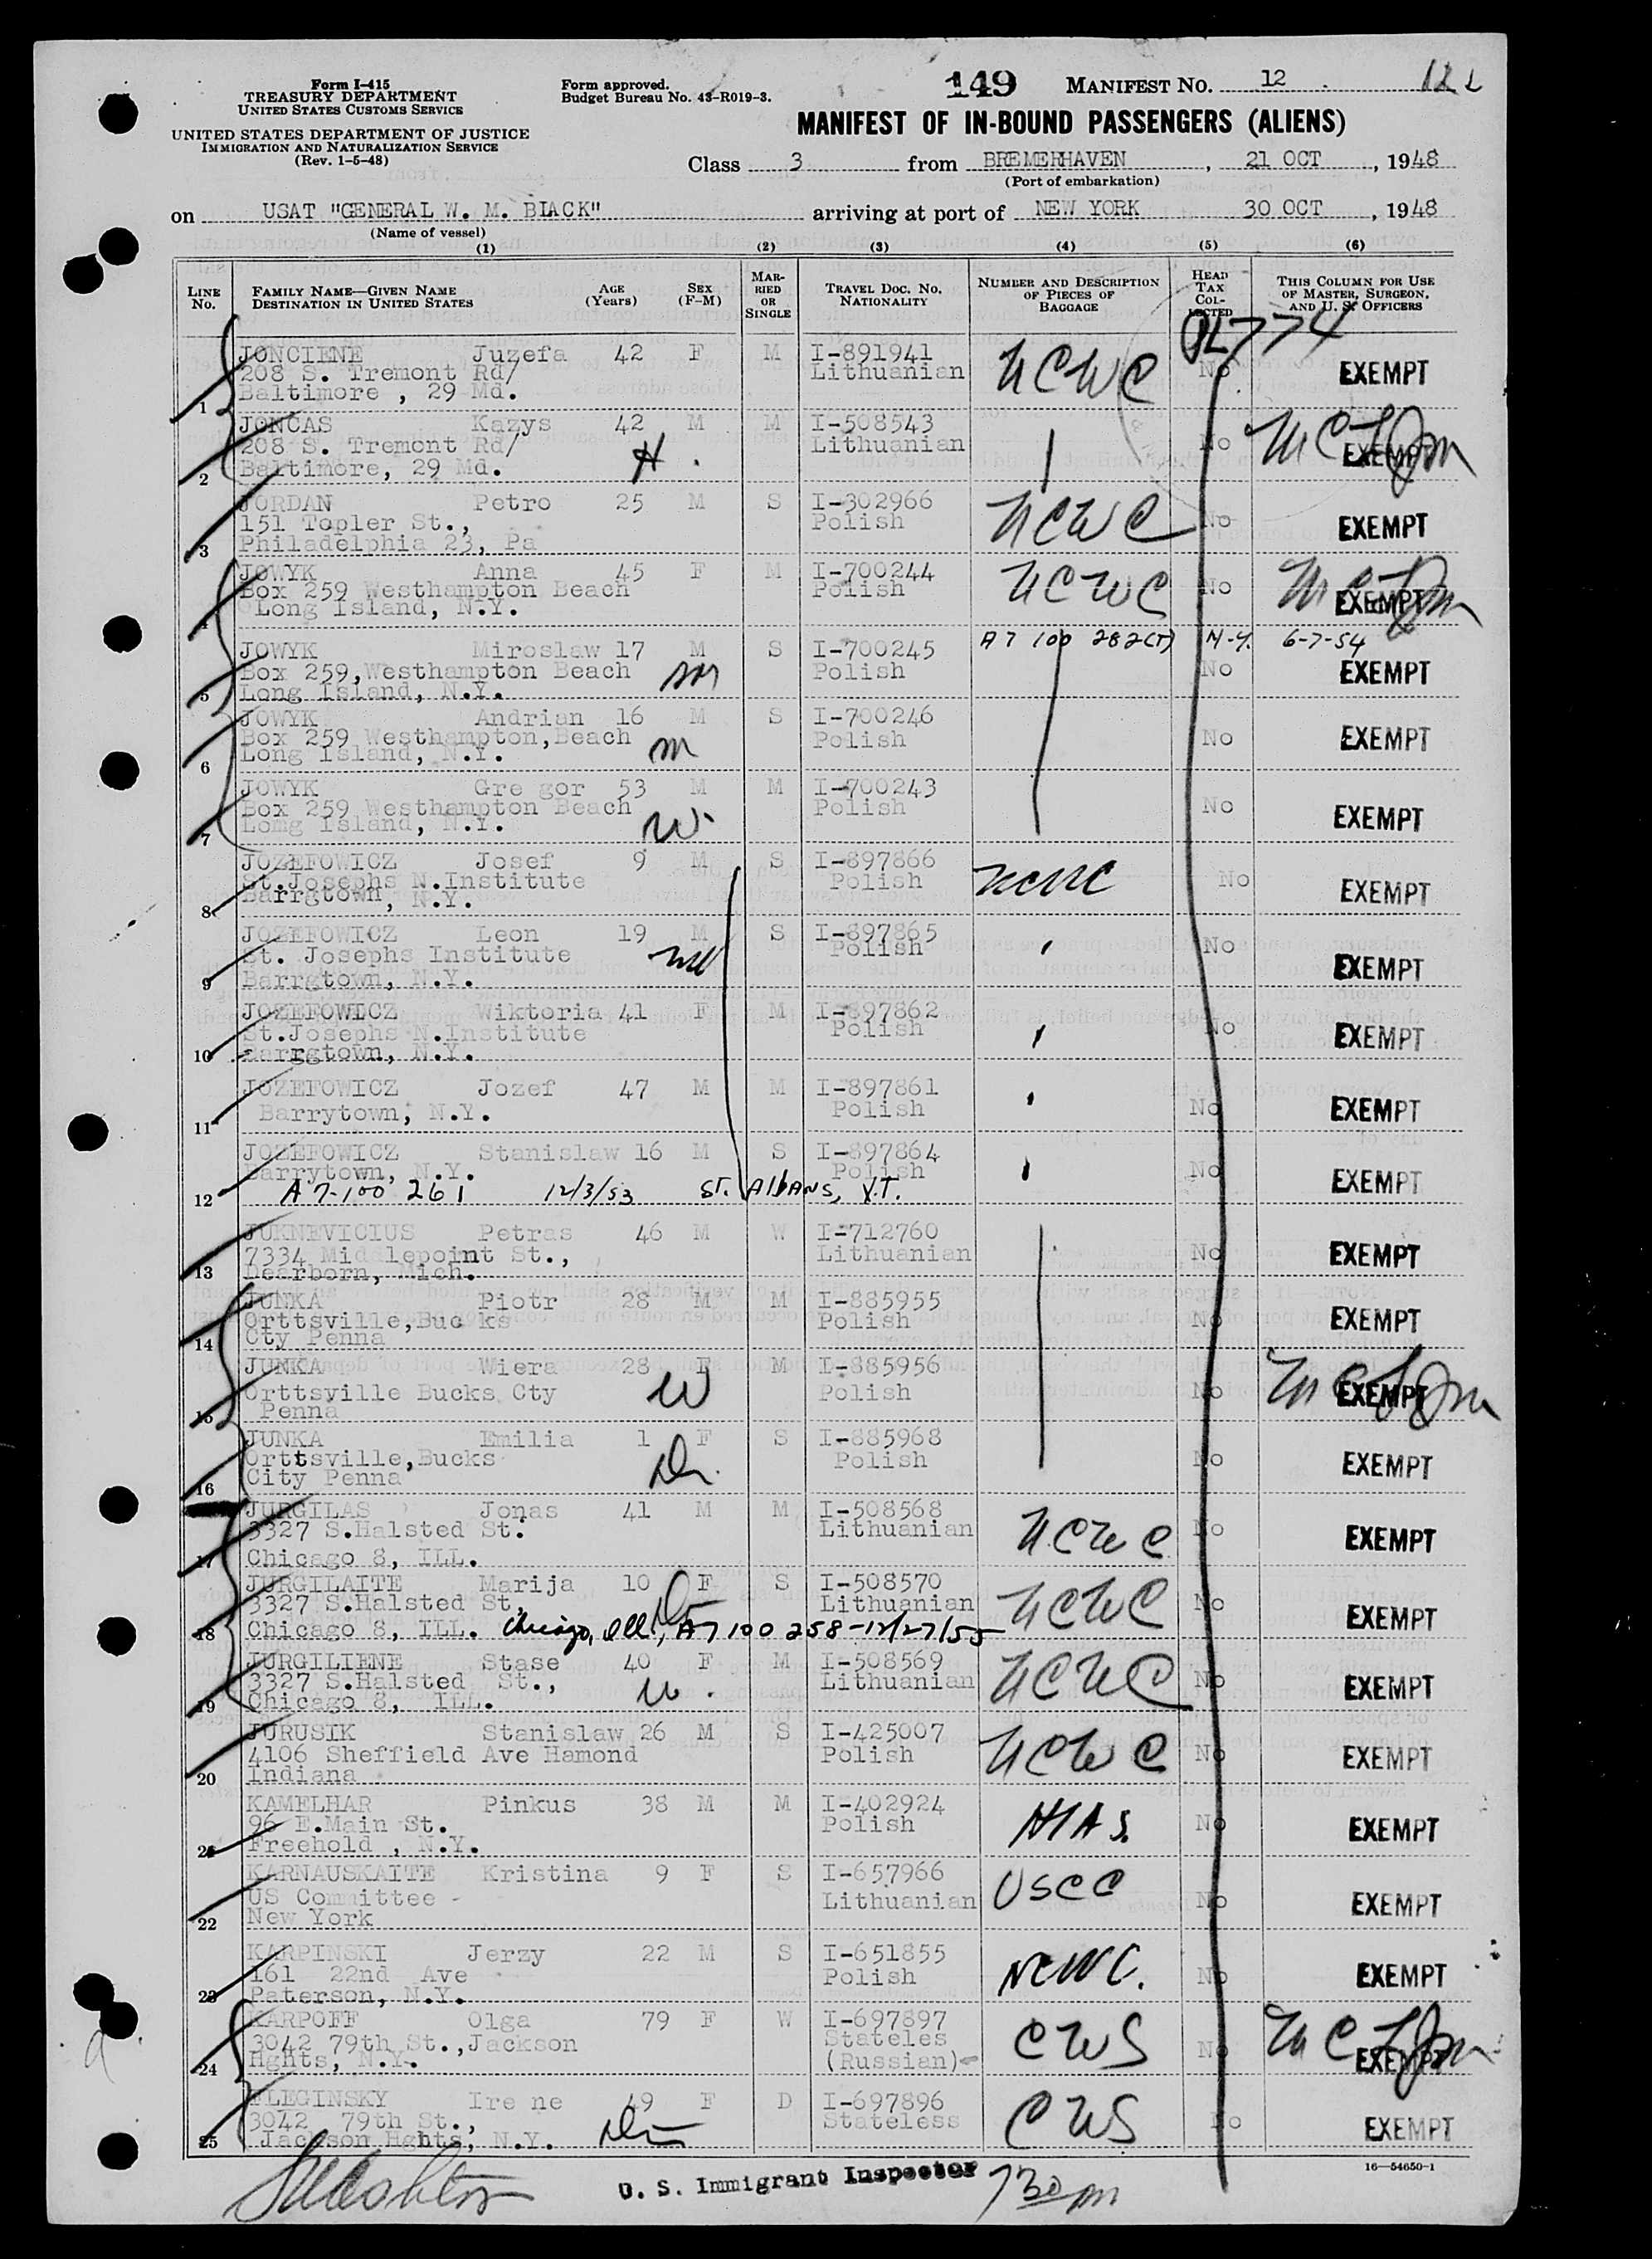 Form I-415
TREASURY DEPARTMENT
UNITED STATES CUSTOMS SERVICE
UNITED STATES DEPARTMENT OF JUSTICE
IMMIGRATION AND NATURALIZATION SERVICE
(Rev. 1-5-48)
Form approved.
Budget Bureau No. 43-R019-3.
149 MANIFEST NO. 12
MANIFEST OF IN-BOUND PASSENGERS (ALIENS)
Class 3 from BREMERHAVEN, 21 OCT, 1948
(Port of embarkation)
on USAT "GENERAL W. M. BLACK" arriving at port of NEW YORK 30 OCT, 1948
(Name of vessel)
(1) (2) (3) (4) (5) (6)
LINE No. FAMILY NAME—GIVEN NAME DESTINATION IN UNITED STATES AGE (Years) SEX (F-M) MARRIED OR SINGLE TRAVEL DOC. NO. NATIONALITY NUMBER AND DESCRIPTION OF PIECES OF BAGGAGE HEAD TAX COLLECTED THIS COLUMN FOR USE OF MASTER, SURGEON, AND U. S. OFFICERS
PL774
JONCIENE Juzefa 42 F M I-891941
208 S. Tremont Rd/ Lithuanian NCWC No EXEMPT
1 Baltimore , 29 Md.
JONCAS Kazys 42 M M I-508543
208 S. Tremont Rd/ Lithuanian No EXEMPT
2 Baltimore, 29 Md. H.
JORDAN Petro 25 M S I-302966
151 Topler St., Polish NCWC No EXEMPT
3 Philadelphia 23, Pa
JOWYK Anna 45 F M I-700244
Box 259 Westhampton Beach Polish NCWC No EXEMPT
4 Long Island, N.Y.
A7 100 282(T) N-Y. 6-7-54
JOWYK Miroslaw 17 M S I-700245
Box 259,Westhampton Beach Polish No EXEMPT
5 Long Island, N.Y.
JOWYK Andrian 16 M S I-700246
Box 259 Westhampton,Beach Polish No EXEMPT
6 Long Island, N.Y.
JOWYK Gre gor 53 M M I-700243
Box 259 Westhampton Beach Polish No EXEMPT
7 Lomg Island, N.Y.
JOZEFOWICZ Josef 9 M S I-897866
St.Josephs N.Institute Polish NCWC No EXEMPT
8 Barrgtown, N.Y.
JOZEFOWICZ Leon 19 M S I-897865
St. Josephs Institute Polish No EXEMPT
9 Barrgtown, N.Y.
JOZEFOWICZ Wiktoria 41 F M I-897862
St.Josephs N.Institute Polish No EXEMPT
10 Barrgtown, N.Y.
JOZEFOWICZ Jozef 47 M M I-897861
11 Barrytown, N.Y. Polish No EXEMPT
JOZEFOWICZ Stanislaw 16 M S I-897864
Barrytown, N.Y. Polish No EXEMPT
12 A7-100 261 12/3/53 ST. ALBANS, VT.
JUKNEVICIUS Petras 46 M W I-712760
7334 Middlepoint St., Lithuanian No EXEMPT
13 Dearborn, Mich.
JUNKA Piotr 28 M M I-885955
Orttsville,Buc ks Polish No EXEMPT
14 Cty Penna
JUNKA Wiera 28 F M I-885956
Orttsville Bucks Cty Polish No EXEMPT
15 Penna W
JUNKA Emilia 1 F S I-885968
Orttsville,Bucks Polish No EXEMPT
16 City Penna
JURGILAS Jonas 41 M M I-508568
3327 S.Halsted St. Lithuanian NCWC No EXEMPT
17 Chicago 8, ILL.
JURGILAITE Marija 10 F S I-508570
3327 S.Halsted St, Lithuanian NCWC No EXEMPT
18 Chicago 8, ILL. Chicago, Ill., A7 100 258-12/27/55
JURGILIENE Stase 40 F M I-508569
3327 S.Halsted St., Lithuanian NCWC No EXEMPT
19 Chicago 8, ILL. W.
JURUSIK Stanislaw 26 M S I-425007
4106 Sheffield Ave Hamond Polish NCWC No EXEMPT
20 Indiana
KAMELHAR Pinkus 38 M M I-402924
96 E.Main St. Polish HIAS. No EXEMPT
21 Freehold , N.Y.
KARNAUSKAITE Kristina 9 F S I-657966
US Committee Lithuanian USCC No EXEMPT
22 New York
KARPINSKI Jerzy 22 M S I-651855
161 22nd Ave Polish NCWC. No EXEMPT
23 Paterson, N.Y.
KARPOFF Olga 79 F W I-697897
3042 79th St.,Jackson Stateles CWS No EXEMPT
24 Hghts, N.Y. (Russian)
FLEGINSKY Ire ne 49 F D I-697896
3042 79th St., Stateless CWS No EXEMPT
25 Jackson Hghts, N.Y.
16—54650-1
U. S. Immigrant Inspector 730 pm